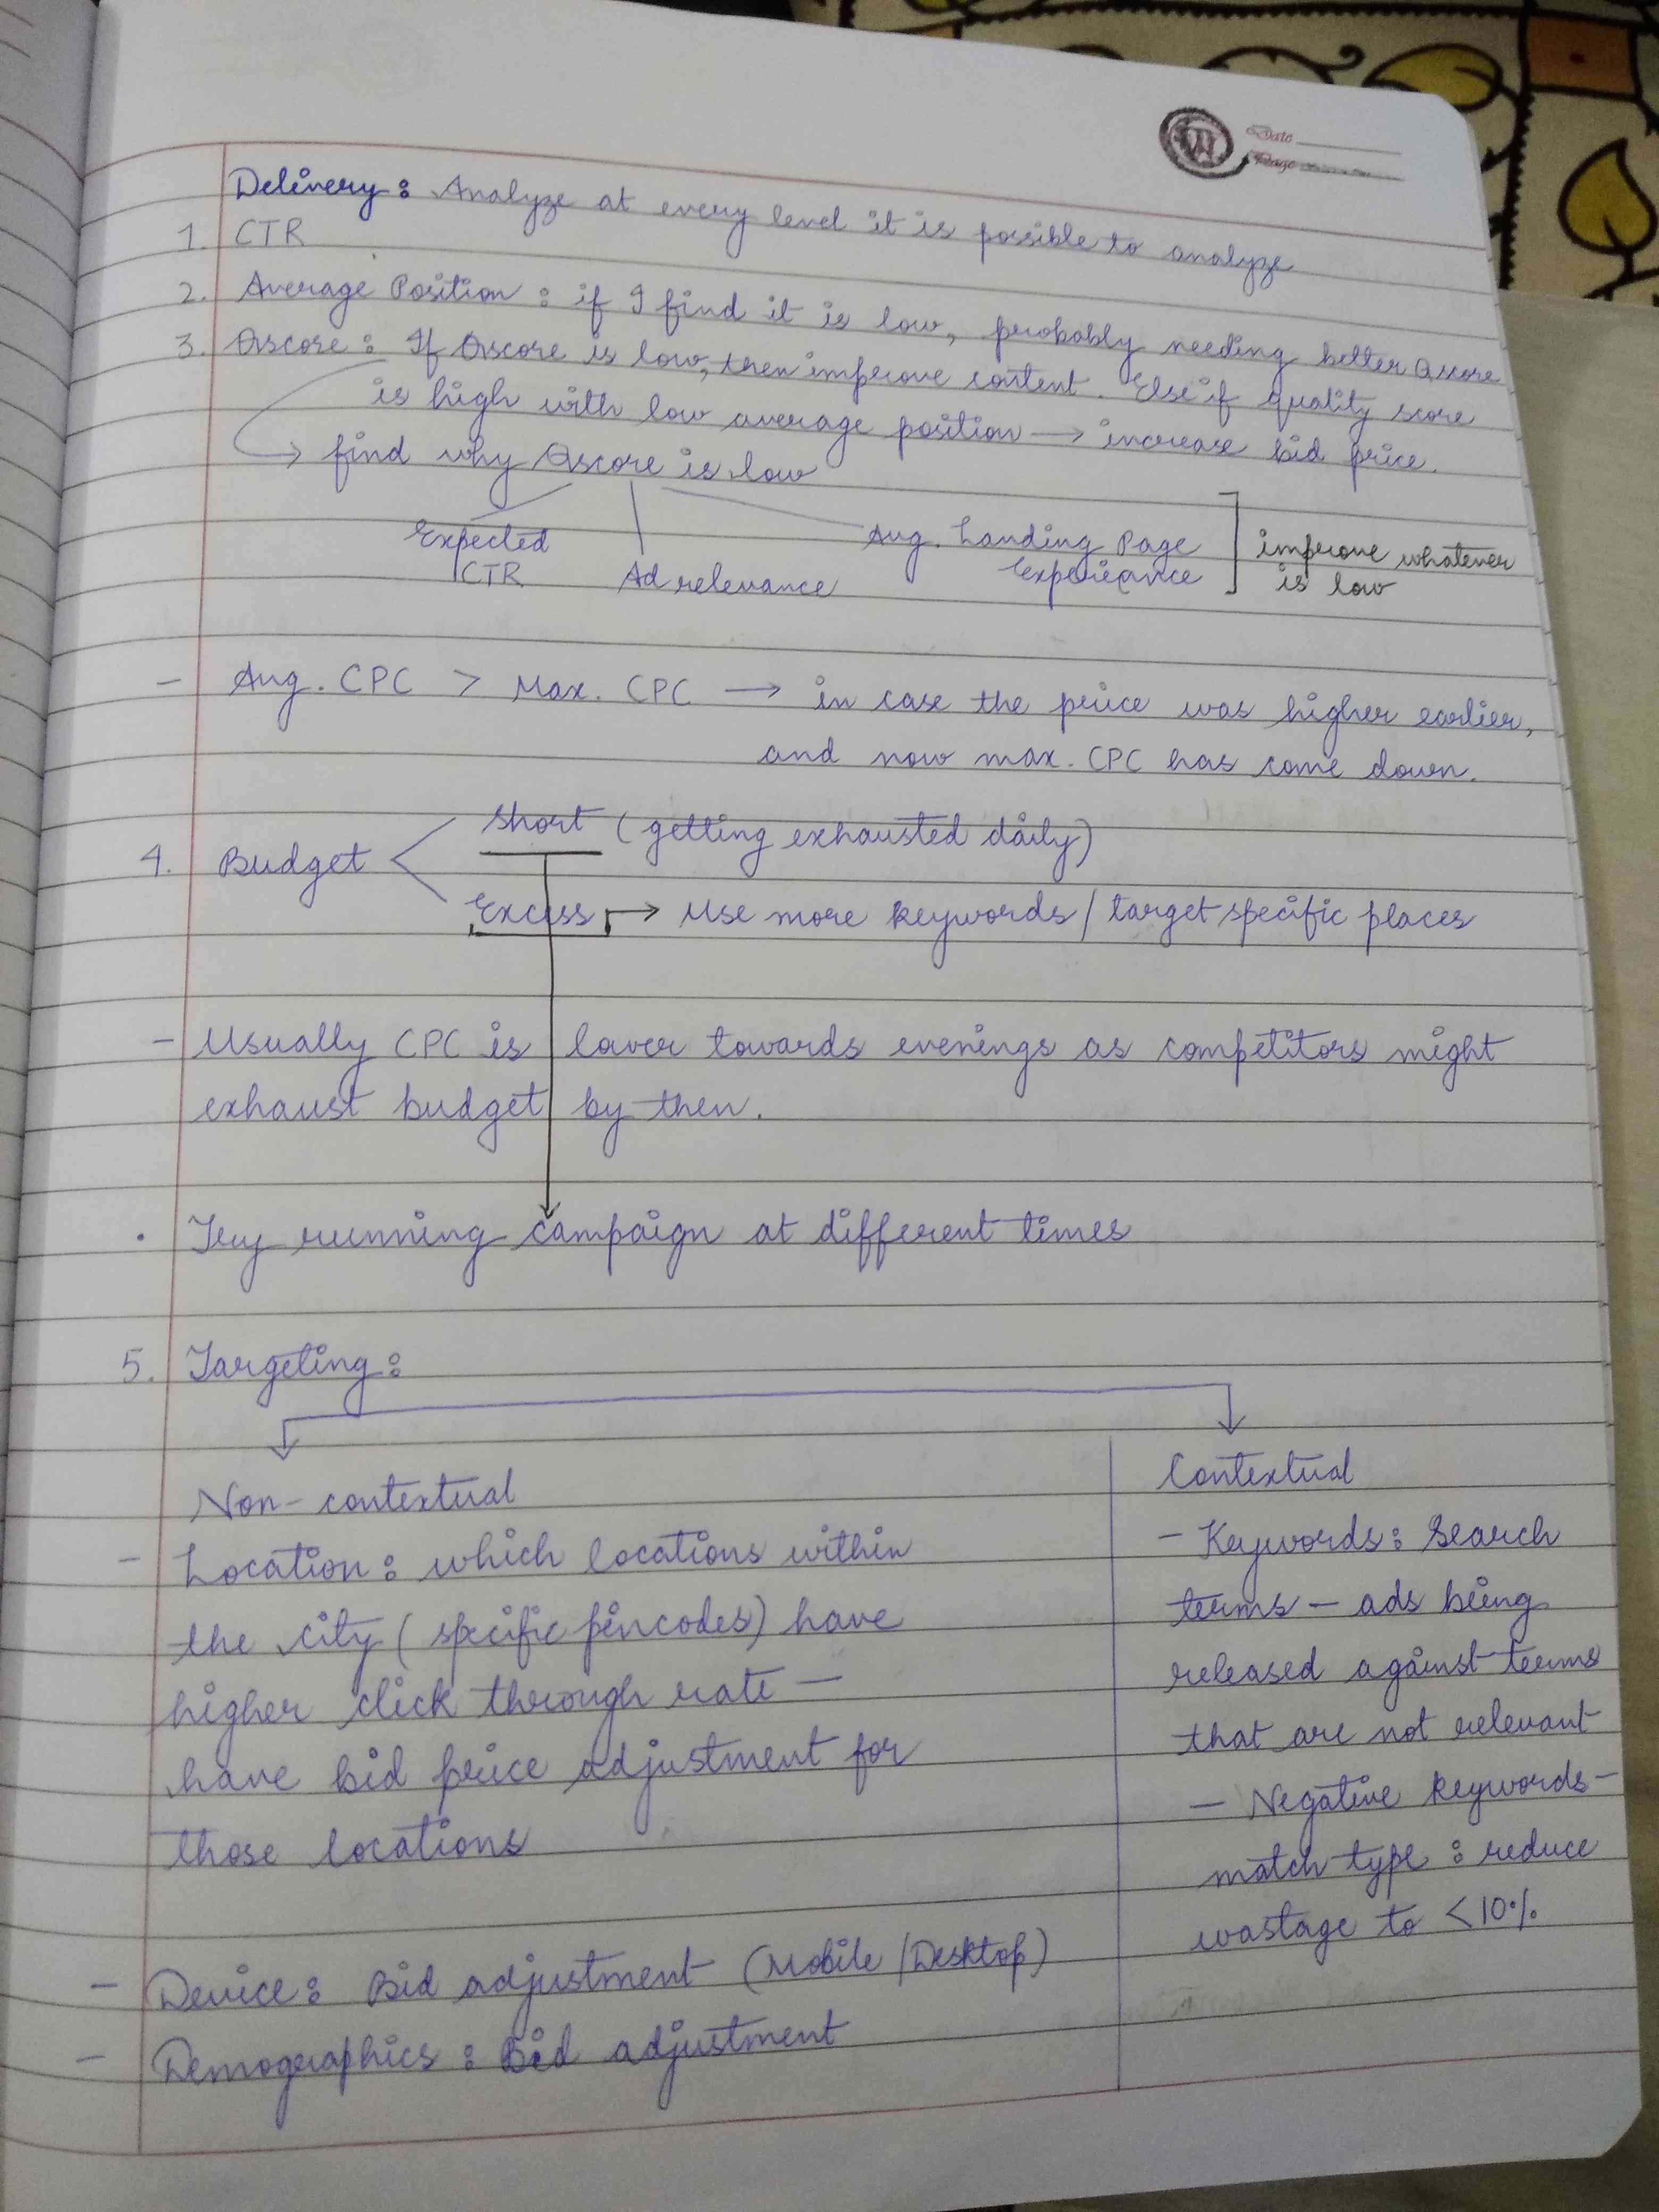 Date
Page
Delivery: Analyze at every level it is possible to analyze
1. CTR
2. Average Position: if I find it is low, probably needing better Qscore
3. Qscore: If Qscore is low, then improve content. Else if quality score
is high with low average position → increase bid price.
→ find why Qscore is low
Expected CTR
Ad relevance
Avg. Landing Page Experience
] improve whatever is low
- Avg. CPC > Max. CPC → in case the price was higher earlier,
and now max. CPC has come down.
4. Budget
Short (getting exhausted daily)
Excess → Use more keywords / target specific places
- Usually CPC is lower towards evenings as competitors might
exhaust budget by then.
• Try running campaign at different times
5. Targeting:
Non-contextual
- Location: which locations within
the city (specific pincodes) have
higher click through rate —
have bid price adjustment for
those locations
- Device: Bid adjustment (Mobile/Desktop)
- Demographics: Bid adjustment
Contextual
- Keywords: Search
terms - ads being
released against terms
that are not relevant
- Negative keywords -
match type: reduce
wastage to <10%